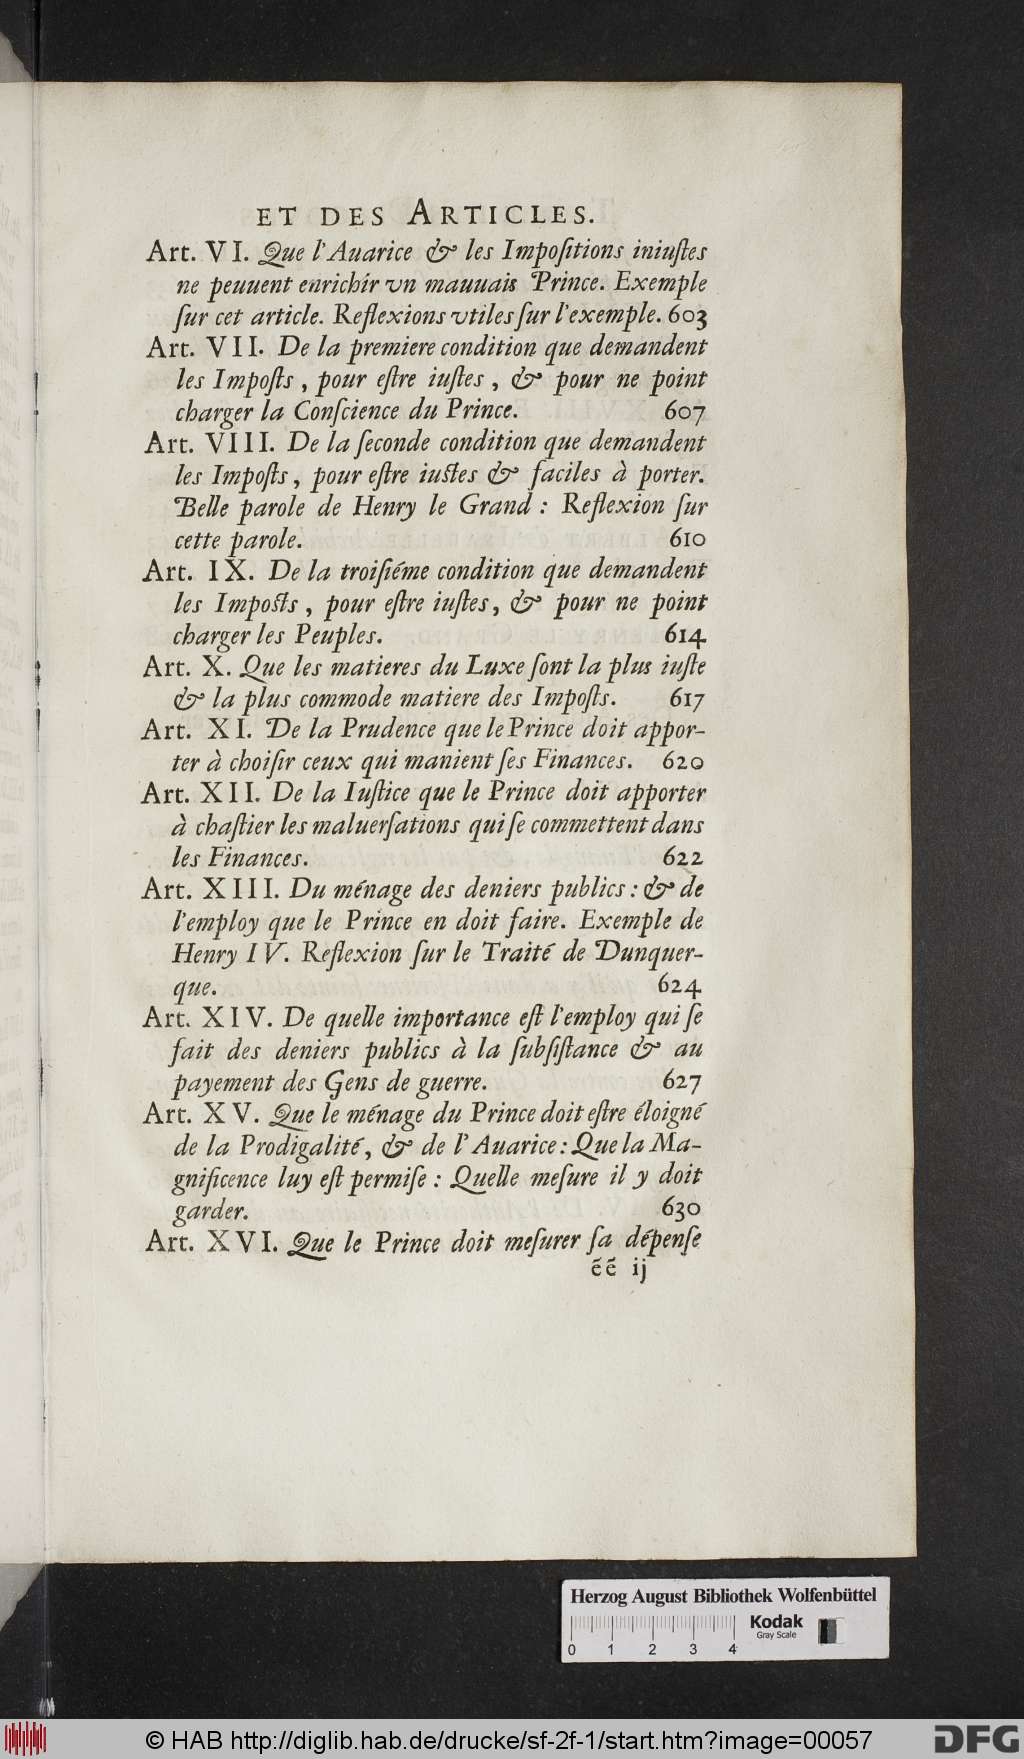 ET DES ARTICLES.
Art. VI. Que l'Auarice & les Impoſitions iniuſtes
ne peuuent enrichir vn mauuais Prince. Exemple
ſur cet article. Reflexions vtiles ſur l'exemple. 603
Art. VII. De la premiere condition que demandent
les Impoſts, pour eſtre iuſtes, & pour ne point
charger la Conſcience du Prince. 607
Art. VIII. De la ſeconde condition que demandent
les Impoſts, pour eſtre iuſtes & faciles à porter.
Belle parole de Henry le Grand : Reflexion ſur
cette parole. 610
Art. IX. De la troiſiéme condition que demandent
les Impoſts, pour eſtre iuſtes, & pour ne point
charger les Peuples. 614
Art. X. Que les matieres du Luxe ſont la plus iuſte
& la plus commode matiere des Impoſts. 617
Art. XI. De la Prudence que le Prince doit appor-
ter à choiſir ceux qui manient ſes Finances. 620
Art. XII. De la Iuſtice que le Prince doit apporter
à chaſtier les maluerſations qui ſe commettent dans
les Finances. 622
Art. XIII. Du ménage des deniers publics : & de
l'employ que le Prince en doit faire. Exemple de
Henry IV. Reflexion ſur le Traité de Dunquer-
que. 624
Art. XIV. De quelle importance eſt l'employ qui ſe
fait des deniers publics à la ſubſiſtance & au
payement des Gens de guerre. 627
Art. XV. Que le ménage du Prince doit eſtre éloigné
de la Prodigalité, & de l'Auarice : Que la Ma-
gnificence luy eſt permiſe : Quelle meſure il y doit
garder. 630
Art. XVI. Que le Prince doit meſurer ſa dépenſe
éé ij
Herzog August Bibliothek Wolfenbüttel
Kodak
Gray Scale
0 1 2 3 4
© HAB http://diglib.hab.de/drucke/sf-2f-1/start.htm?image=00057
DFG